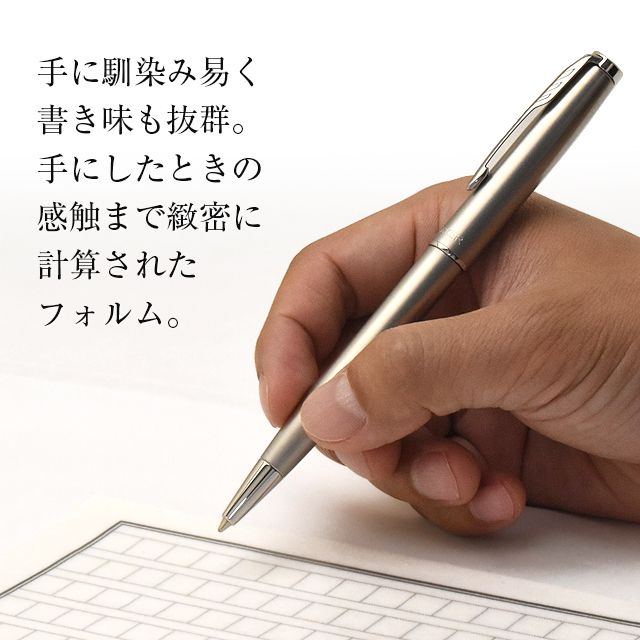 手に馴染み易く
書き味も抜群。
手にしたときの
感触まで緻密に
計算された
フォルム。